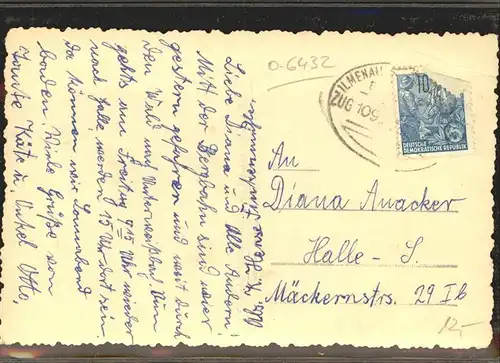 Liebe Diana und Alle Andern!
Mit der Bergbahn sind wir
gestern gefahren und weit durch
den Wald und Unterweißbach. Nun
gehts am Freitag 9 15 Uhr wieder
nach Halle, werden 15 Uhr dort sein
Da können wir Sonnabend
baden. Viele Grüße von
Tante Käte u. Onkel Otto.
0-6432
ILMENAU
ZUG 109
10
DEUTSCHE
DEMOKRATISCHE REPUBLIK
An
Diana Anacker
Halle - S.
Mäckernstrs. 29 I b
12,-